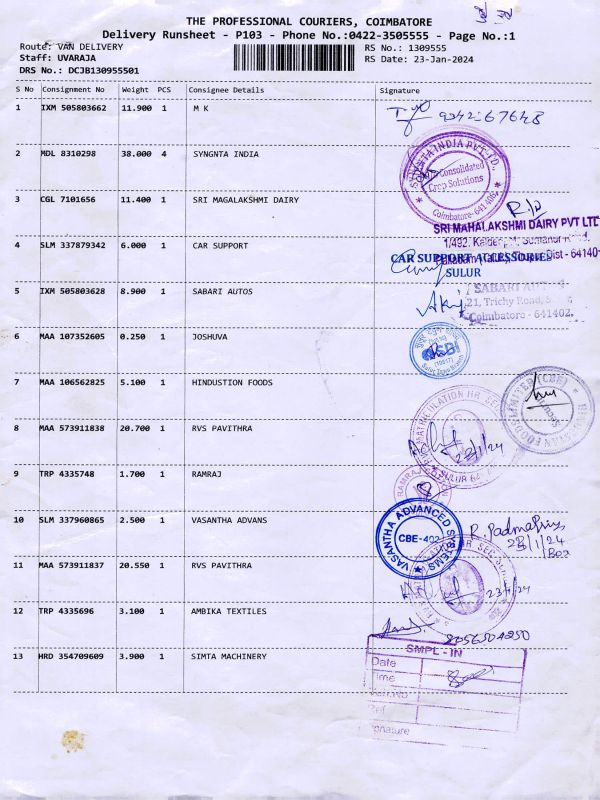 THE PROFESSIONAL COURIERS, COIMBATORE
Delivery Runsheet - P103 - Phone No.:0422-3505555 - Page No.:1
Route: VAN DELIVERY
RS No.: 1309555
Staff: UVARAJA
RS Date: 23-Jan-2024
DRS No.: DCJB130955501
S No Consignment No Weight PCS Consignee Details Signature
1 IXM 505803662 11.900 1 M K
9342267648
2 MDL 8310298 38.000 4 SYNGNTA INDIA
INDIA PVT. LTD.
Consolidated
Crop Solutions
Coimbatore-641
3 CGL 7101656 11.400 1 SRI MAGALAKSHMI DAIRY
SRI MAHALAKSHMI DAIRY PVT LTD
4 SLM 337879342 6.000 1 CAR SUPPORT
CAR SUPPORT ACCESSORIES
SULUR
5 IXM 505803628 8.900 1 SABARI AUTOS
SABARI
21, Trichy Road,
Coimbatore - 641402.
6 MAA 107352605 0.250 1 JOSHUVA
SBI
7 MAA 106562825 5.100 1 HINDUSTION FOODS
FOODS LIMITED (CBE)
8 MAA 573911838 20.700 1 RVS PAVITHRA
MATRICULATION HR. SEC.
SULUR
9 TRP 4335748 1.700 1 RAMRAJ
RAMRAJ
10 SLM 337960865 2.500 1 VASANTHA ADVANS
VASANTHA ADVANCED SYSTEMS
CBE-402
R. Padmapriya
23/1/24
11 MAA 573911837 20.550 1 RVS PAVITHRA
HR. SEC.
23/1/24
12 TRP 4335696 3.100 1 AMBIKA TEXTILES
13 HRD 354709609 3.900 1 SIMTA MACHINERY
SMPL - IN
Date
Time
Ref